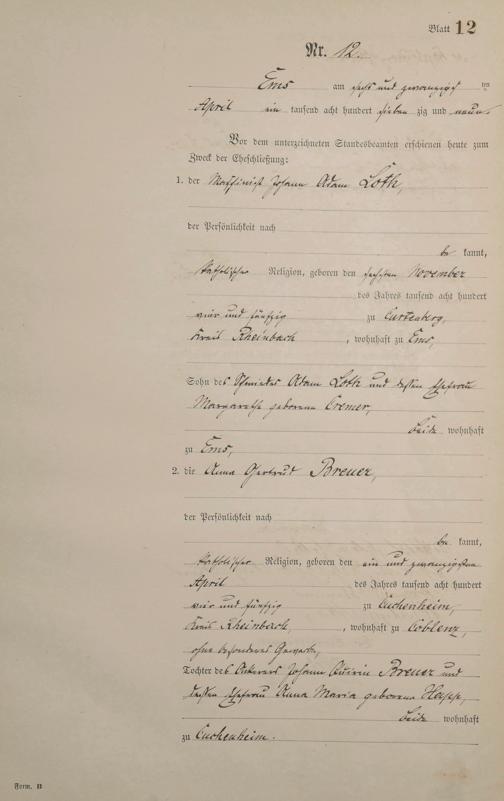 Blatt 12
Nr. 12.
Ems am sechs und zwanzigsten
April ein tausend acht hundert sieben zig und neun.
Vor dem unterzeichneten Standesbeamten erschienen heute zum
Zweck der Eheschließung:
1. der Maschinist Johann Adam Loth,
der Persönlichkeit nach
be kannt,
katholischer Religion, geboren den sechsten November
des Jahres tausend acht hundert
vier und fünfzig zu Curtenberg,
Kreis Rheinbach, wohnhaft zu Ems,
Sohn des Schmiedes Adam Loth und dessen Ehefrau
Margarethe geborene Cremer,
beide wohnhaft
zu Ems,
2. die Anna Gertrud Breuer,
der Persönlichkeit nach
be kannt,
katholischer Religion, geboren den ein und zwanzigsten
April des Jahres tausend acht hundert
vier und fünfzig zu Cuchenheim,
Kreis Rheinbach, wohnhaft zu Coblenz,
ohne besonderes Gewerbe,
Tochter des Ackerers Johann Quirin Breuer und
dessen Ehefrau Anna Maria geborene
beide wohnhaft
zu Cuchenheim.
Form. B